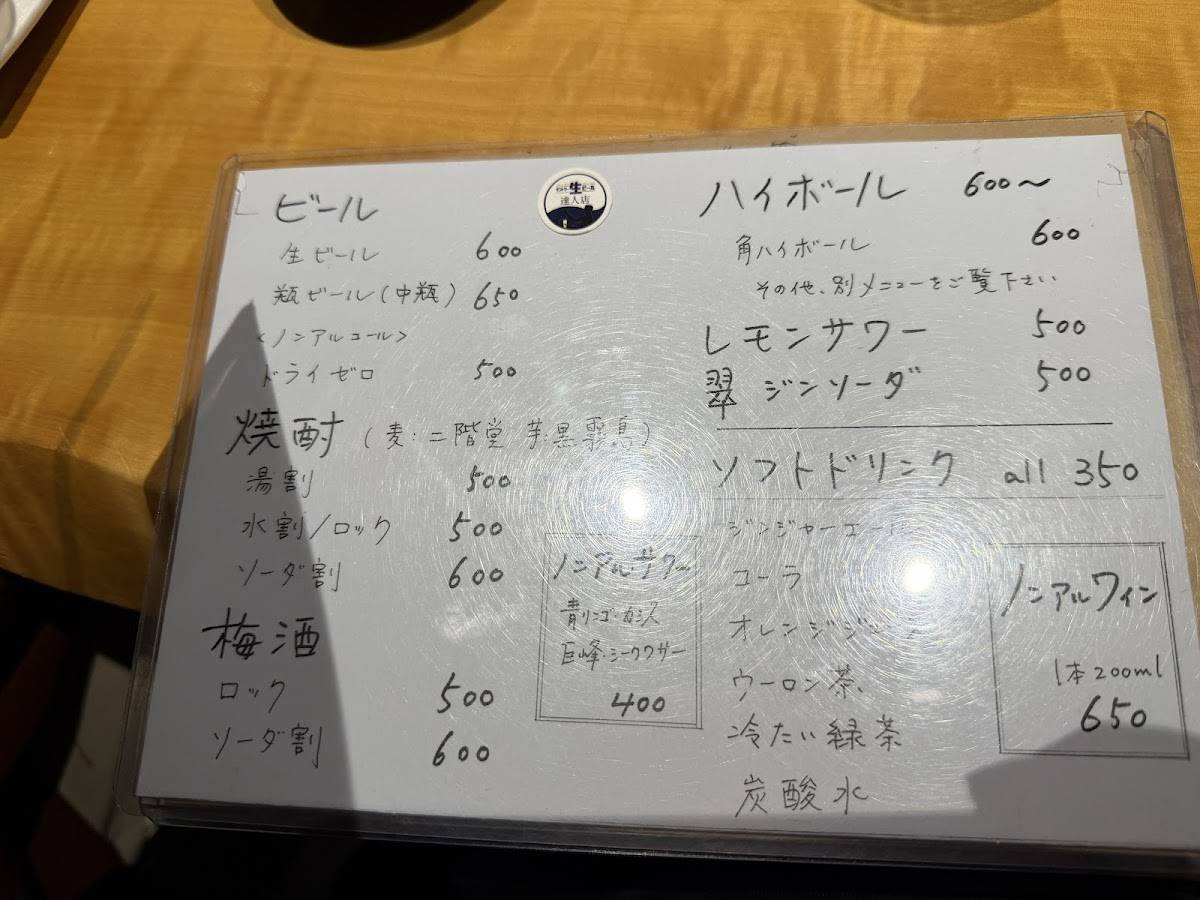 ビール
生ビール 600
瓶ビール(中瓶) 650
<ノンアルコール>
ドライゼロ 500
焼酎 (麦:二階堂 芋:黒霧島)
湯割 500
水割/ロック 500
ソーダ割 600
梅酒
ロック 500
ソーダ割 600
ノンアルサワー
青リンゴ・カシス
巨峰・シークワサー
400
生
達人店
ハイボール 600〜
角ハイボール 600
その他、別メニューをご覧下さい
レモンサワー 500
翠 ジンソーダ 500
ソフトドリンク all 350
ジンジャーエール
コーラ
オレンジジュース
ウーロン茶
冷たい緑茶
炭酸水
ノンアルワイン
1本200ml
650